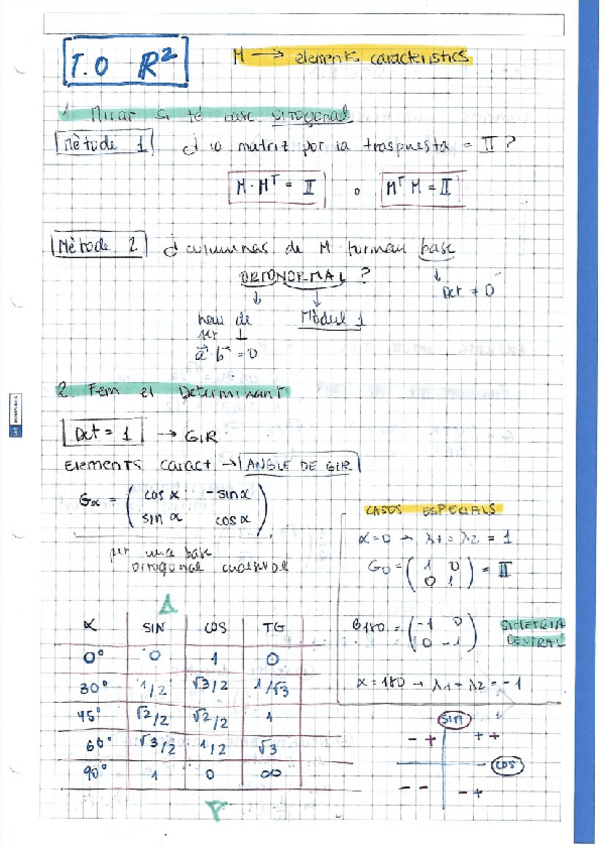 T.O R²
M → elements característics
1. Mirar si té base ortogonal
Mètode 1 d la matriz por la traspuesta = II ?
M · Mᵀ = II o Mᵀ M = II
Mètode 2 d columnas de M forman base
ORTONORMAL ?
Det ≠ 0
han de Mòdul 1
ser ⊥
a⃗ b⃗ = 0
2. Fem el Determinant
Det = 1 → GIR
Elements caract → ANGLE DE GIR
Gα = ( cos α -sin α
sin α cos α )
per una base
ortogonal cualsevol
CASOS ESPECIALS
α = 0 → λ1 = λ2 = 1
G0 = ( 1 0
0 1 ) = II
G180 = ( -1 0
0 -1 ) SIMETRIA CENTRAL
α = 180 → λ1 = λ2 = -1
α SIN COS TG
0° 0 1 0
30° 1/2 √3/2 1/√3
45° √2/2 √2/2 1
60° √3/2 1/2 √3
90° 1 0 ∞
SIN
- + + +
COS
- - - +